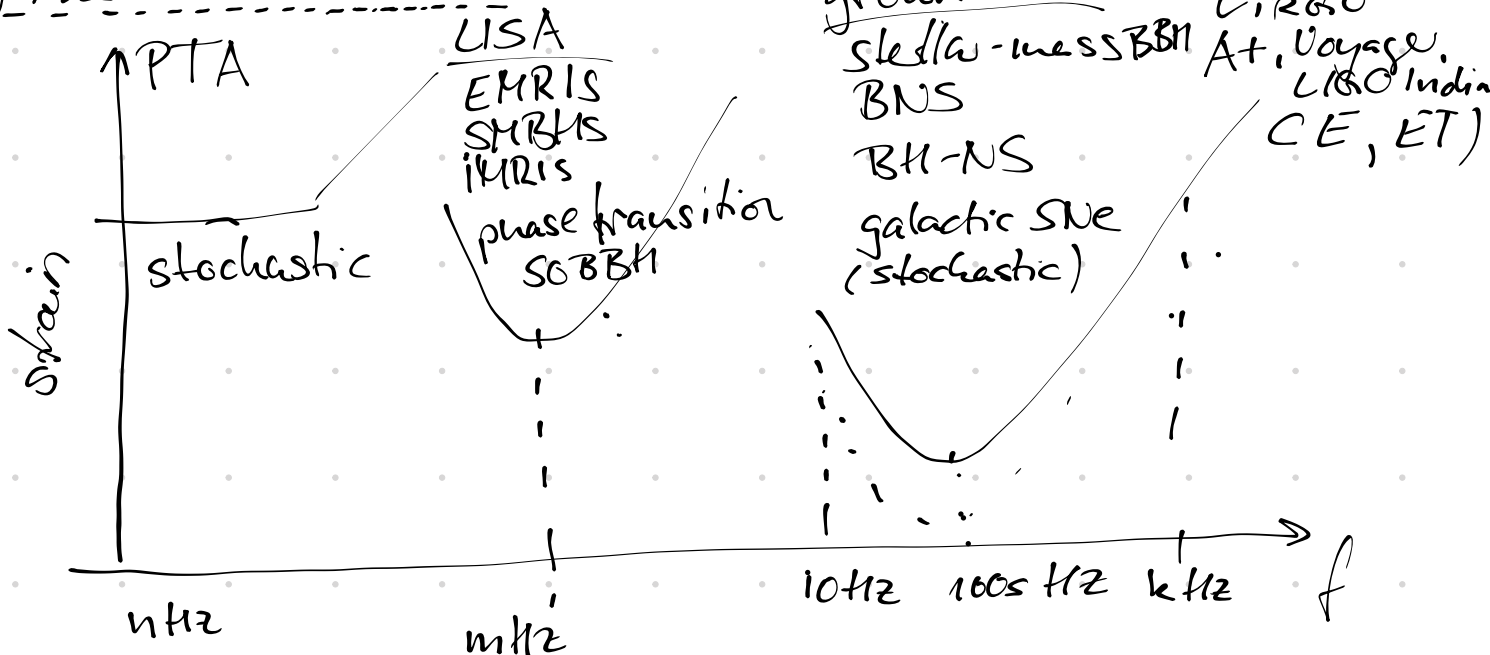 PTA
stochastic
strain
LISA
EMRIS
SMBHS
iMRIS
phase transition
SOBBH
stella-mass BBH
BNS
BH-NS
galactic SNe
(stochastic)
A+, Voyage.
LIGO India
CE, ET)
nHz
mHz
10Hz
100s HZ
kHz
f